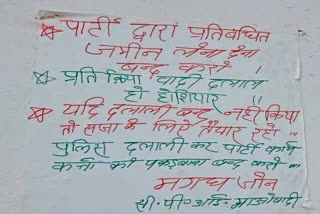 ☆ पार्टी द्वारा प्रतिबन्धित
जमीन लेना देना
बन्द करो ।
☆ प्रतिक्रिया वादी दलाल
हो होशियार ।।
☆ यदि दलाली बन्द नहीं किया
तो सजा के लिए तैयार रहो ।।
पुलिस दलाली कर पार्टी कार्य
कर्त्ता को पकड़वाना बन्द करो
मगध जोन
सी. पी० आई- माओवादी